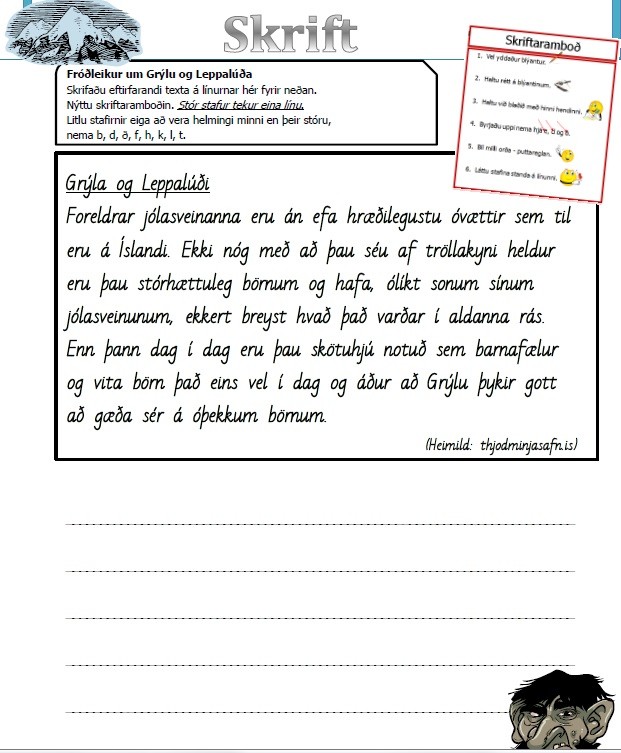 Skrift
Fróðleikur um Grýlu og Leppalúða
Skrifaðu eftirfarandi texta á línurnar hér fyrir neðan.
Nýttu skriftaramboðin. Stór stafur tekur eina línu.
Litlu stafirnir eiga að vera helmingi minni en þeir stóru,
nema b, d, ð, f, h, k, l, t.
Skriftaramboð
1. Vel yddaður blýantur.
2. Haltu rétt á blýantinum.
3. Haltu við blaðið með hinni hendinni.
4. Byrjaðu uppi nema hjá e, d og ð.
5. Bil milli orða - puttareglan.
6. Láttu stafina standa á línunni.
Grýla og Leppalúði
Foreldrar jólasveinanna eru án efa hræðilegustu óvættir sem til
eru á Íslandi. Ekki nóg með að þau séu af tröllakyni heldur
eru þau stórhættuleg börnum og hafa, ólíkt sonum sínum
jólasveinunum, ekkert breyst hvað það varðar í aldanna rás.
Enn þann dag í dag eru þau skötuhjú notuð sem barnafælur
og vita börn það eins vel í dag og áður að Grýlu þykir gott
að gæða sér á óþekkum börnum.
(Heimild: thjodminjasafn.is)